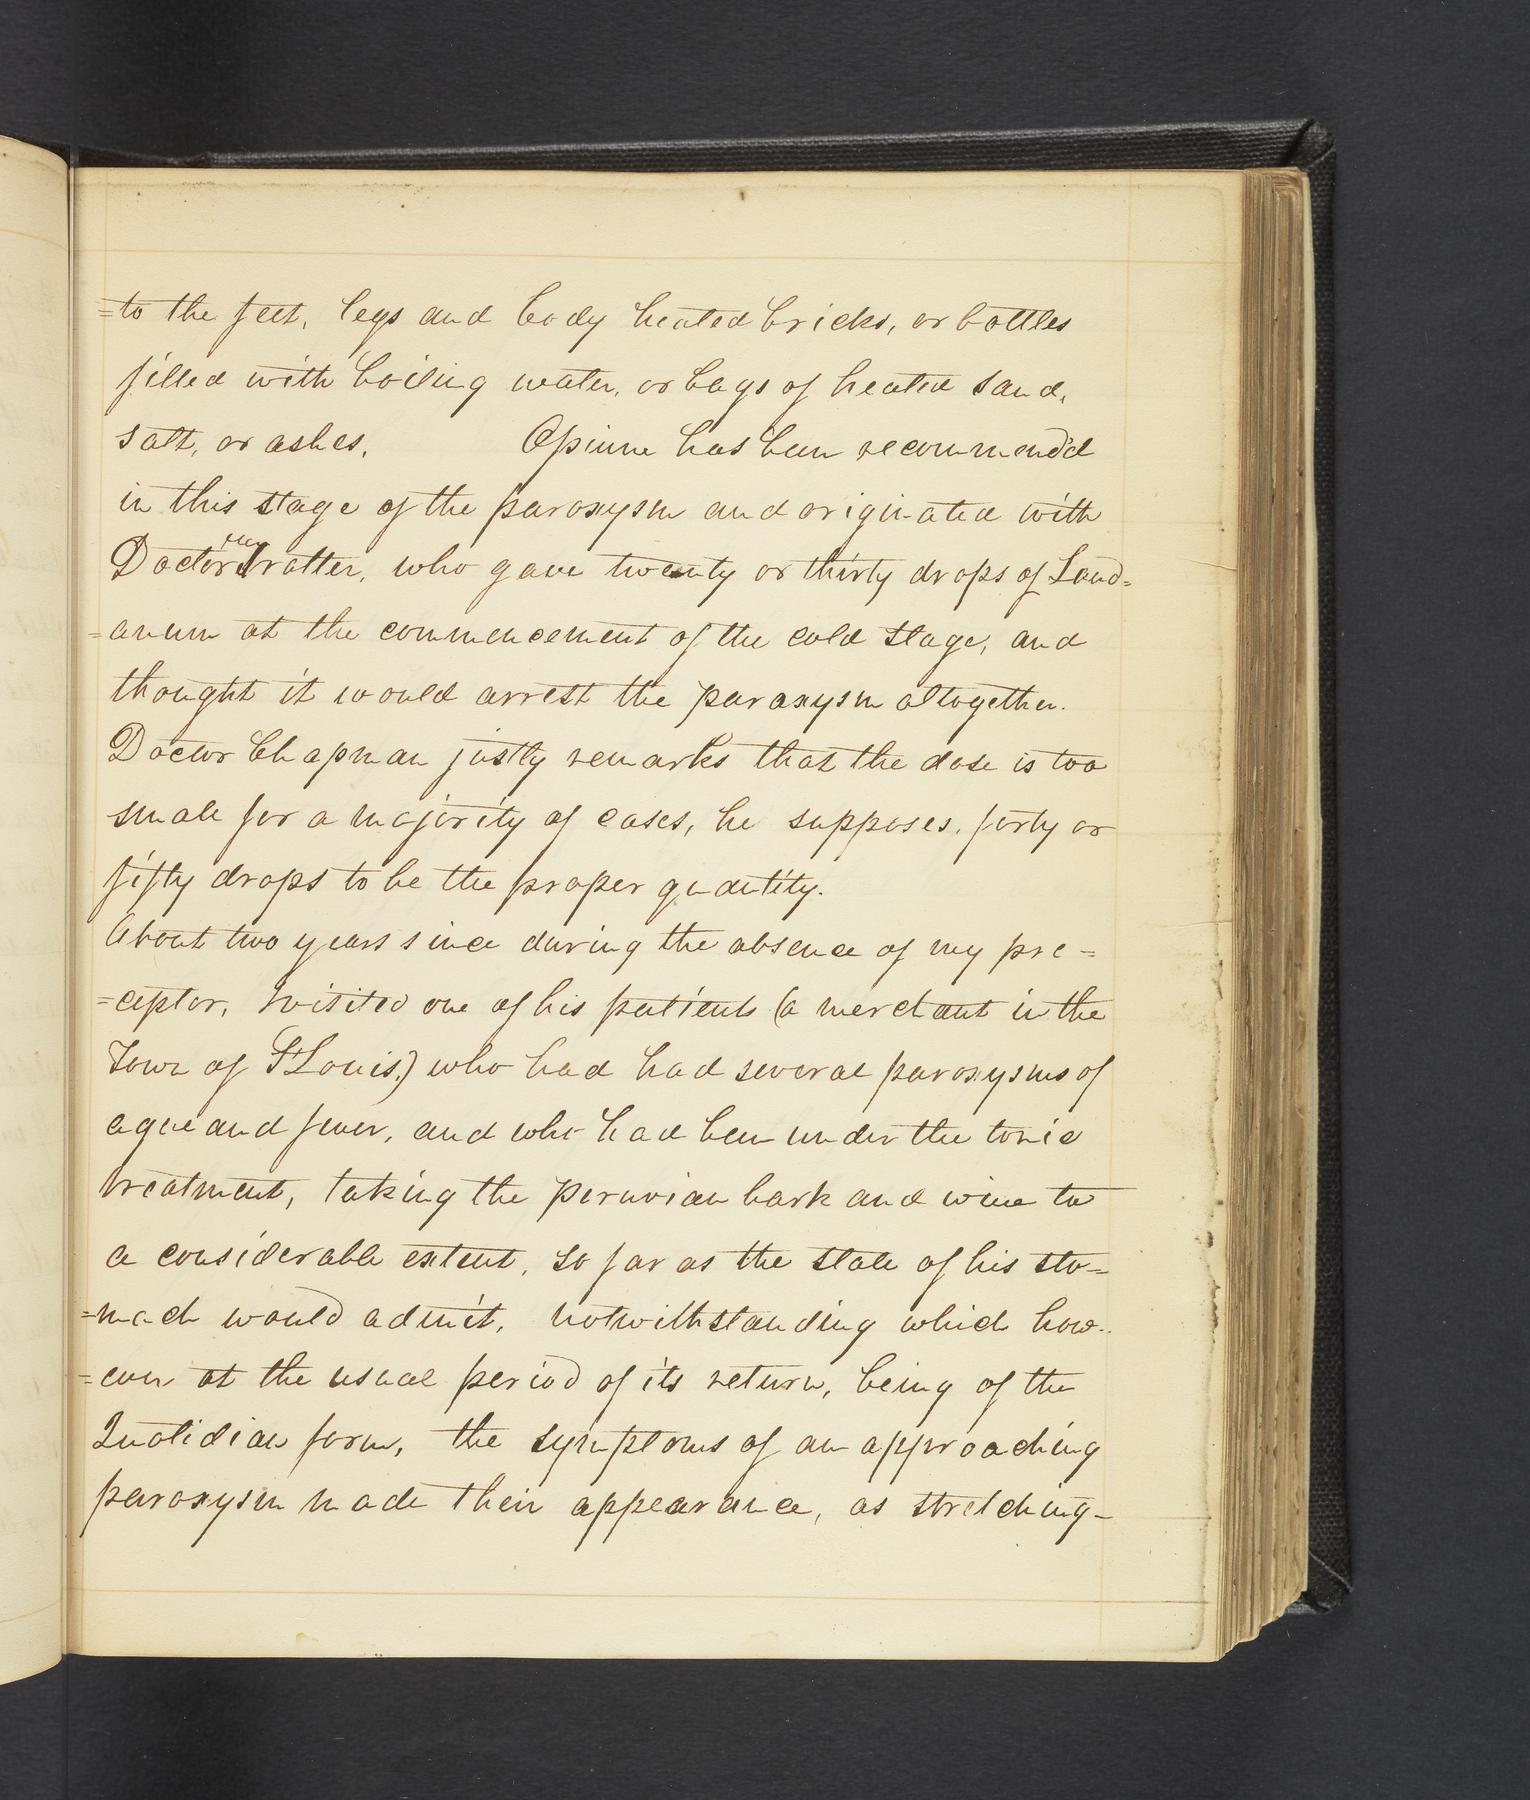 =to the feet, legs and body heated bricks, or bottles
filled with boiling water, or bags of heated sand,
salt, or ashes. Opium has been recommend'd
in this stage of the paroxysm and originated with
Doctor Trotter, who gave twenty or thirty drops of Laud=
=anum at the commencement of the cold stage, and
thought it would arrest the paroxysm altogether.
Doctor Chapman justly remarks that the dose is too
small for a majority of cases, he supposes, forty or
fifty drops to be the proper quantity.
About two years since during the absence of my pre=
=ceptor, I visited one of his patients (a merchant in the
Town of St Louis.) who had had several paroxysms of
ague and fever, and who had been under the tonic
treatment, taking the Peruvian bark and wine to
a considerable extent, so far as the state of his sto=
=mach would admit, notwithstanding which how=
=ever at the usual period of its return, being of the
Quotidian form, the symptoms of an approaching
paroxysm made their appearance, as stretching-